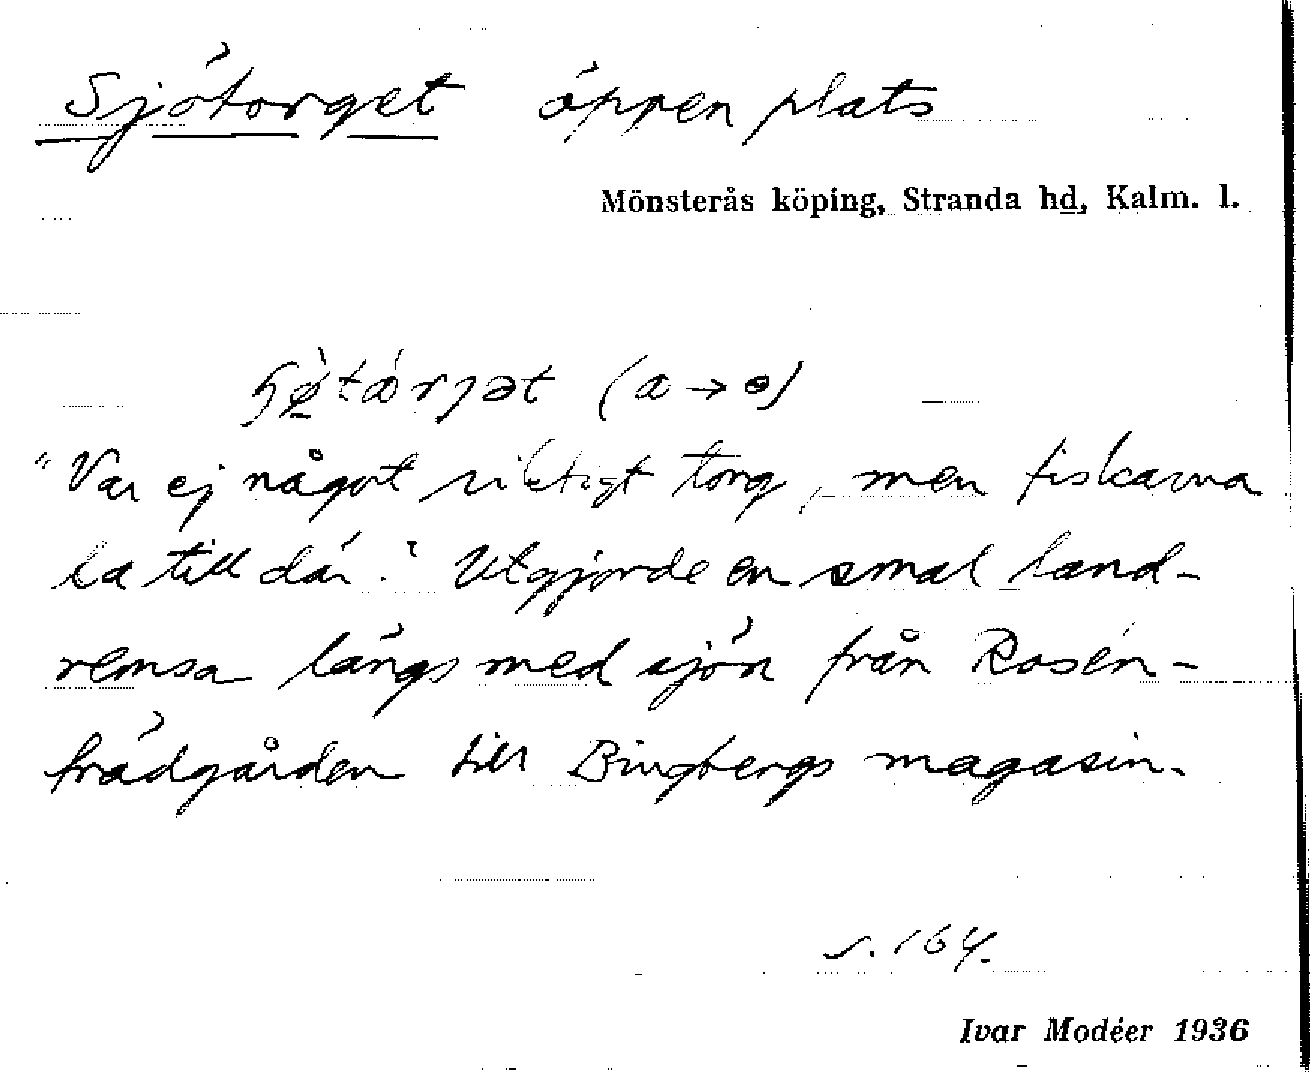 Sjötorget öppen plats
Mönsterås köping, Stranda hd, Kalm. l.
(a → o)
"Var ej något riktigt torg, men fiskarna
la till där." Utgjorde en smal land-
remsa längs med sjön från Rosén-
trädgården till Bingbergs magasin.
s. 164.
Ivar Modéer 1936